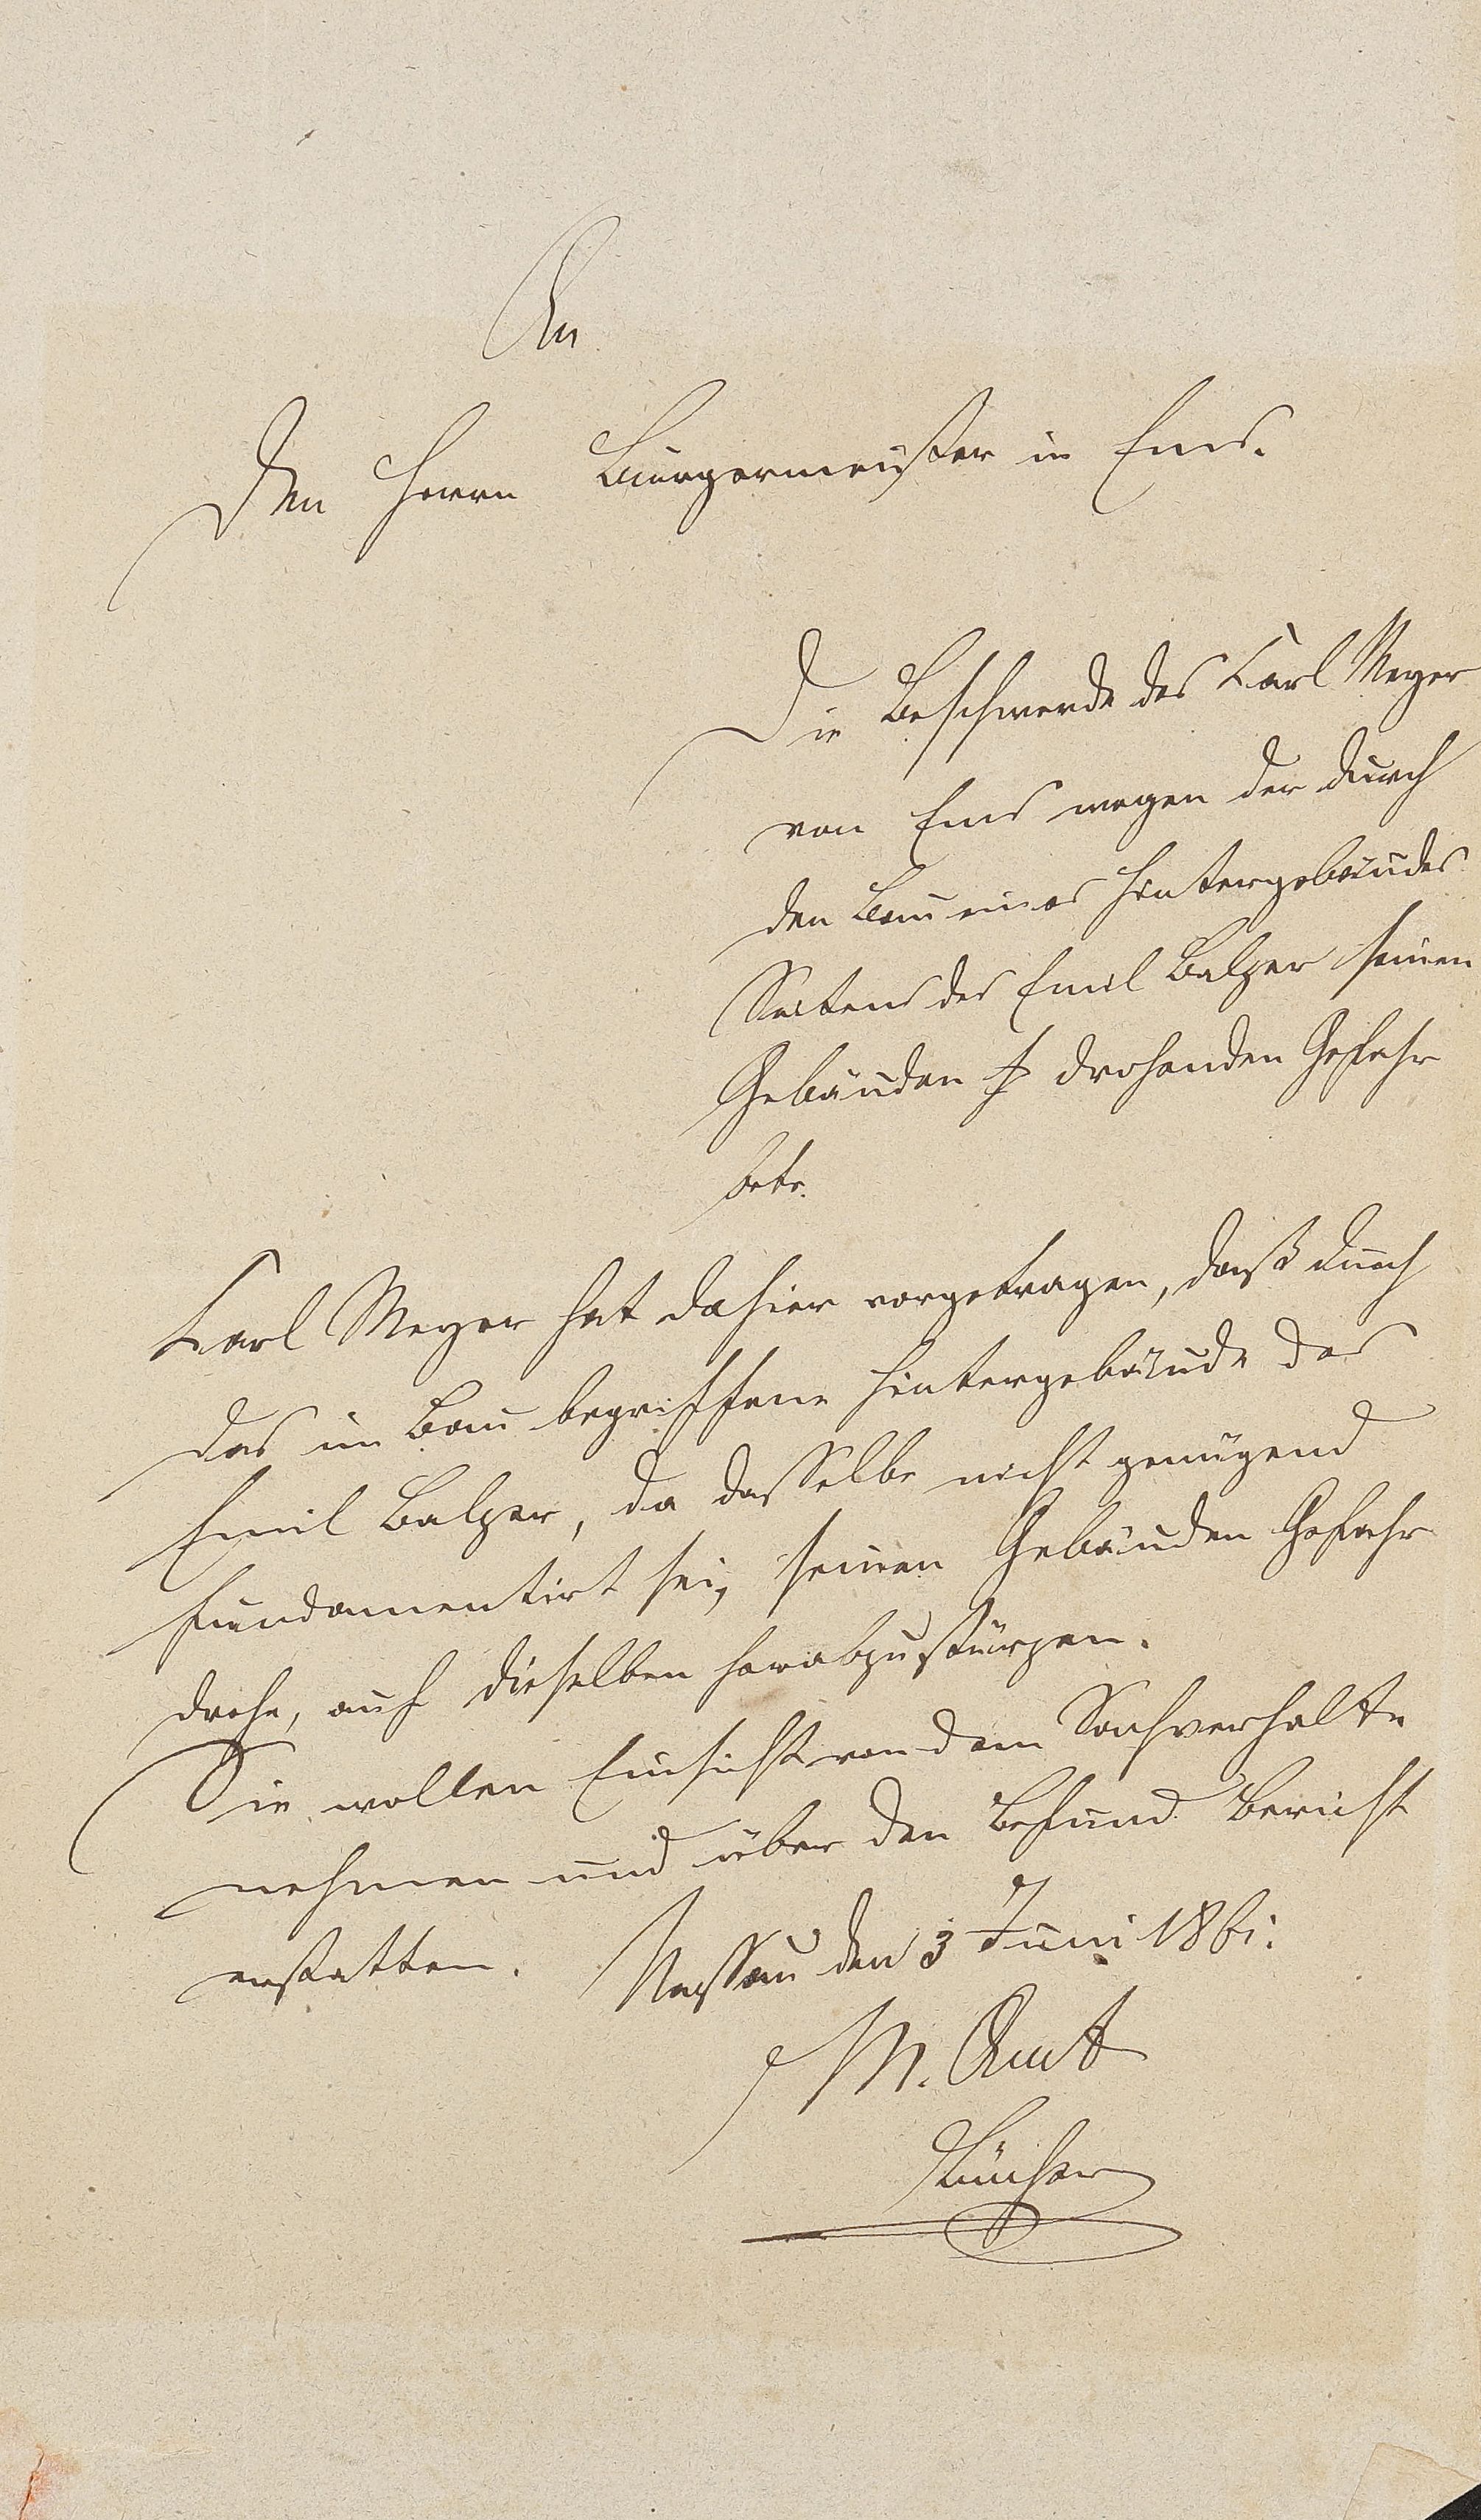 An
den Herrn Bürgermeister in Ems.
Die Beschwerde des Karl Meyer
von Ems wegen der durch
den Bau eines Hintergebäudes
Seitens des Emil Balzer seinen
Gebäuden drohenden Gefahr
betr.
Karl Meyer hat dahier vorgetragen, daß durch
das im Bau begriffene Hintergebäude des
Emil Balzer, da dasselbe nicht genügend
fundamentirt sei, seinen Gebäuden Gefahr
drohe, auf dieselben herabzustürzen.
Sie wollen Einsicht von dem Sachverhalte
nehmen und über den Befund Bericht
erstatten. Nassau den 3 Juni 1861.
H. N. Amt